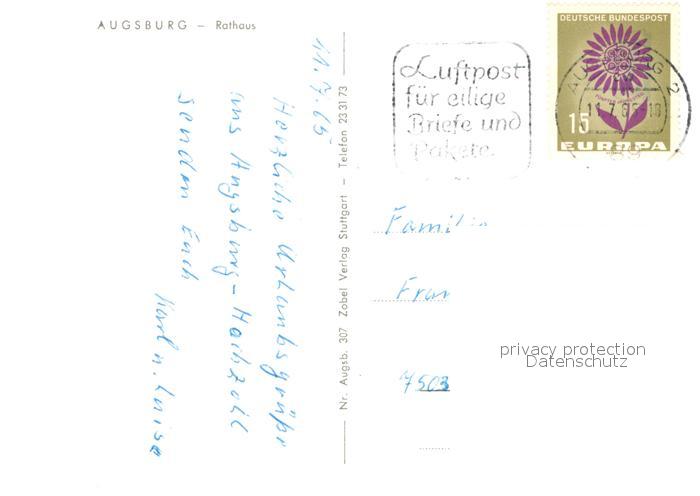 AUGSBURG – Rathaus
11.7.65
Herzliche Urlaubsgrüße
aus Augsburg-Hochzoll
senden Euch
Karl u. Luise
Nr. Augsb. 307 Zobel Verlag Stuttgart – Telefon 23 31 73
Luftpost
für eilige
Briefe und
Pakete.
DEUTSCHE BUNDESPOST
15
EUROPA
Famili
Fran
7503
privacy protection
Datenschutz